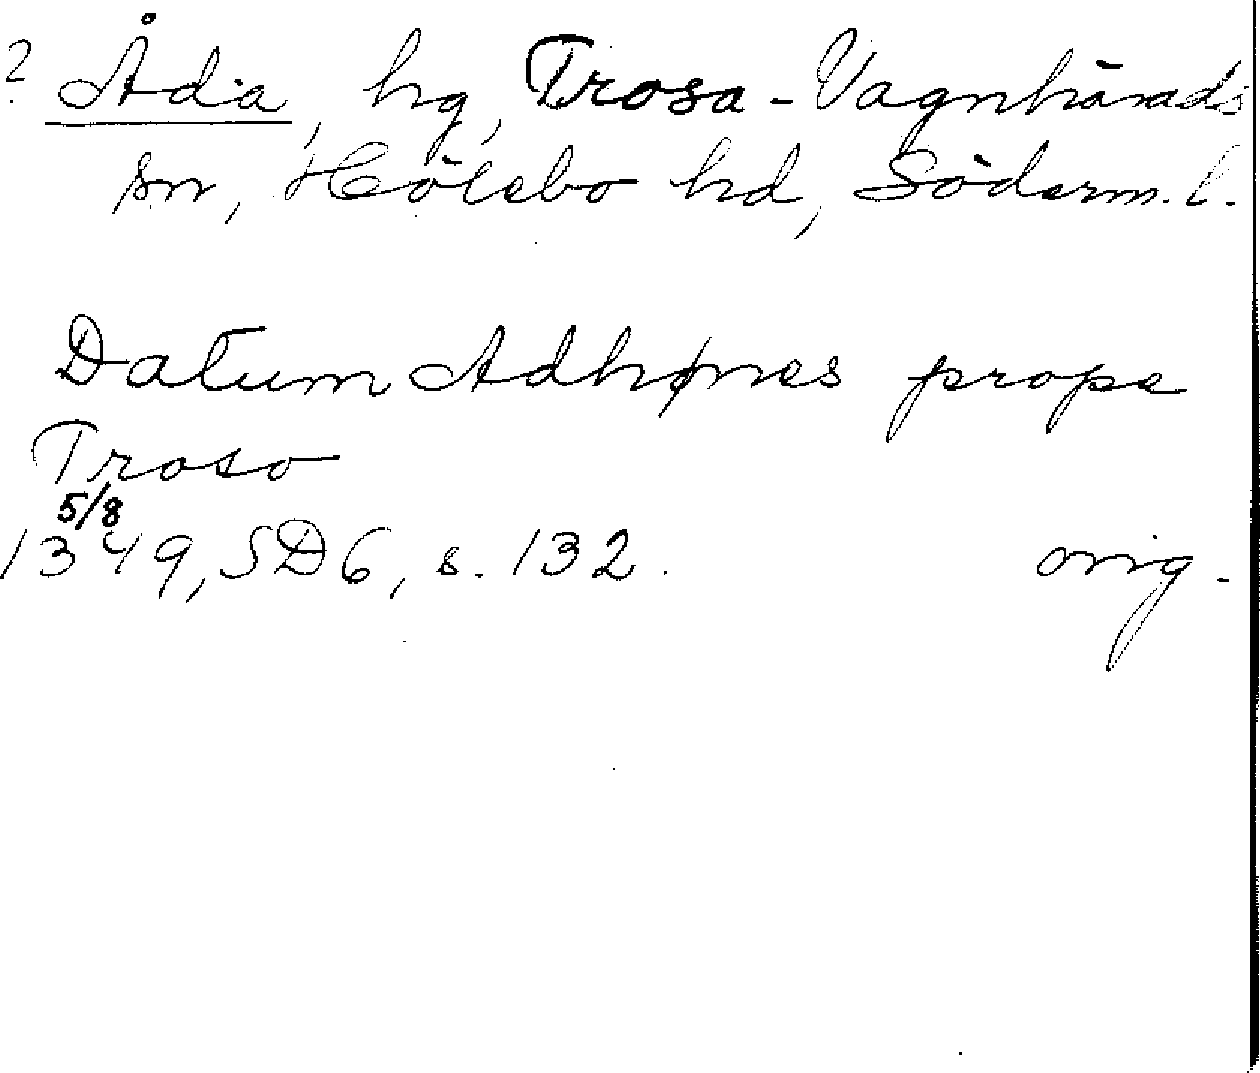 ? Åda, hg, Trosa-Vagnhärads
sn, Hölebo hd, Söderm. l.
Datum Adhønes prope
Troso
5/8
1349, SD 6, s. 132. orig.